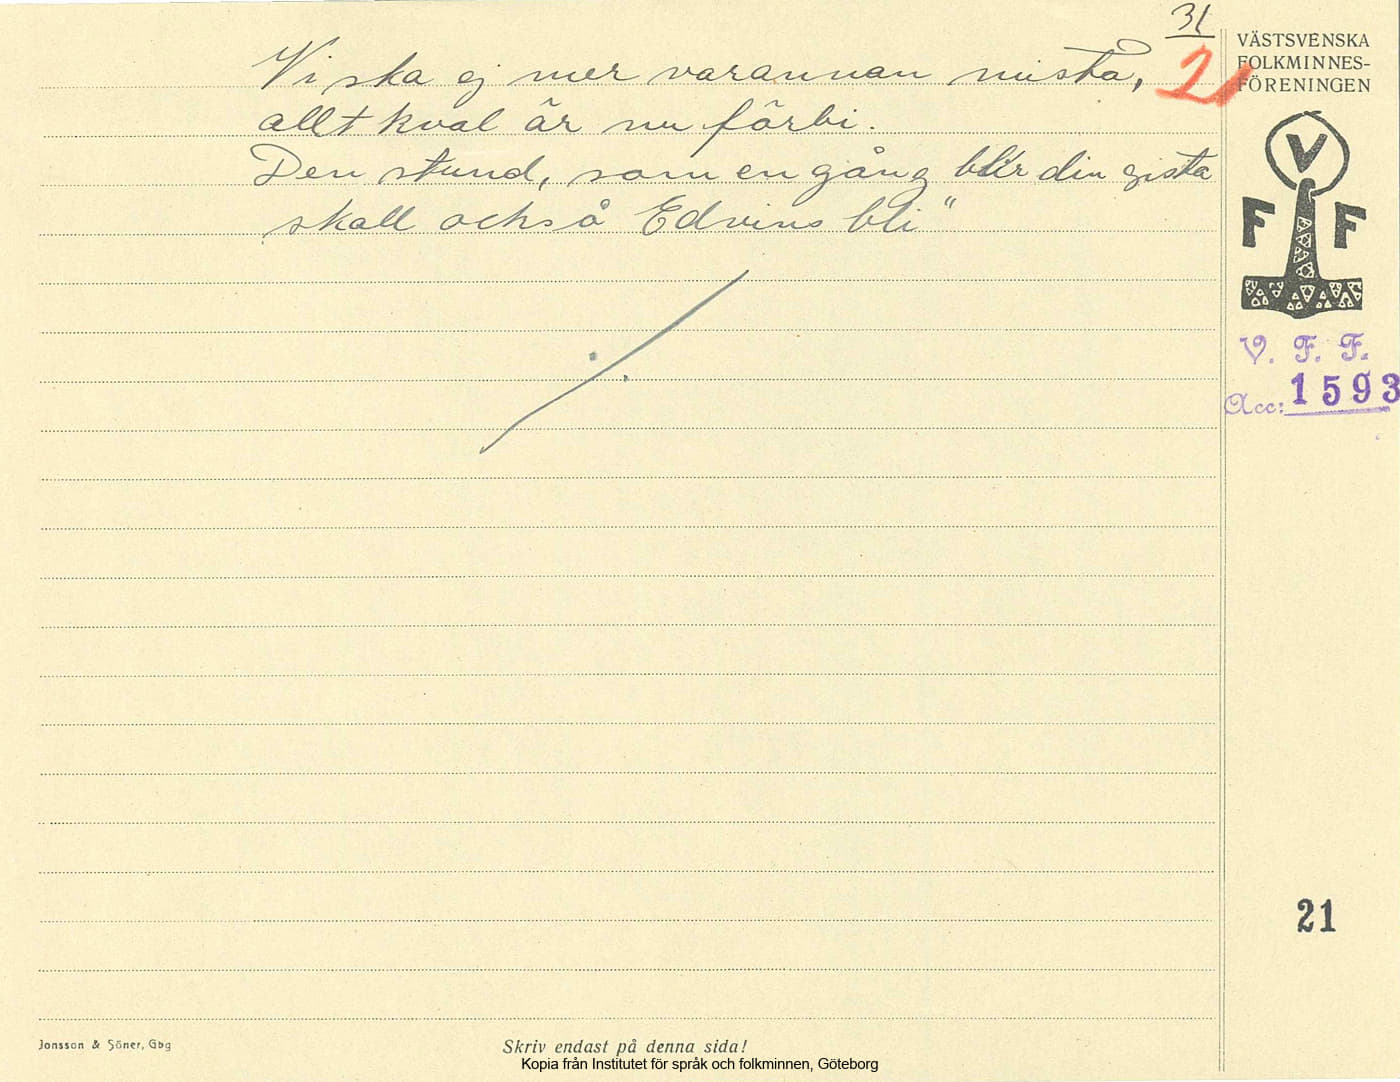 31
21
VÄSTSVENSKA
FOLKMINNES-
FÖRENINGEN
Vi ska ej mer varannan mista,
allt kval är nu förbi.
Den stund, som en gång blir din sista
skall också Edvins bli"
V
F F
V. F. F.
Acc: 1593
21
Jonsson & Söner, Gbg
Skriv endast på denna sida!
Kopia från Institutet för språk och folkminnen, Göteborg